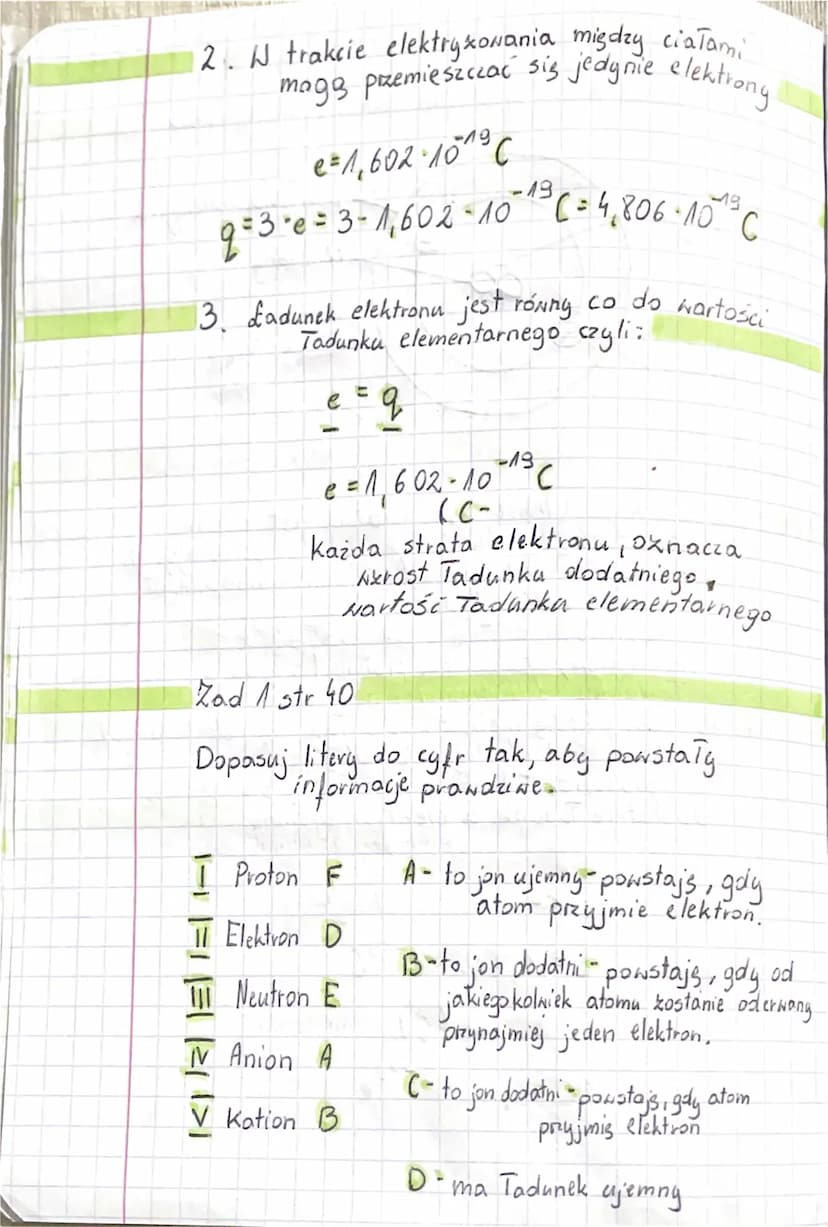 2. W trakcie elektryzowania między ciałami
mogą przemieszczać się jedynie elektrony
e=1,602·10⁻¹⁹C
q=3·e=3·1,602·10⁻¹⁹C=4,806·10⁻¹⁹C
3. Ładunek elektronu jest równy co do wartości
ładunku elementarnego czyli:
e = q
e=1,602·10⁻¹⁹C
(C-
Każda strata elektronu, oznacza
wzrost ładunku dodatniego,
wartość ładunku elementarnego
Zad 1 str 40
Dopasuj litery do cyfr tak, aby powstały
informacje prawdziwe.
I Proton F
II Elektron D
III Neutron E
IV Anion A
V Kation B
A- to jon ujemny-powstaję, gdy
atom przyjmie elektron.
B-to jon dodatni- powstaję, gdy od
jakiegokolwiek atomu zostanie oderwany
przynajmiej jeden elektron.
C- to jon dodatni-powstaję, gdy atom
przyjmię elektron
D- ma ładunek ujemny